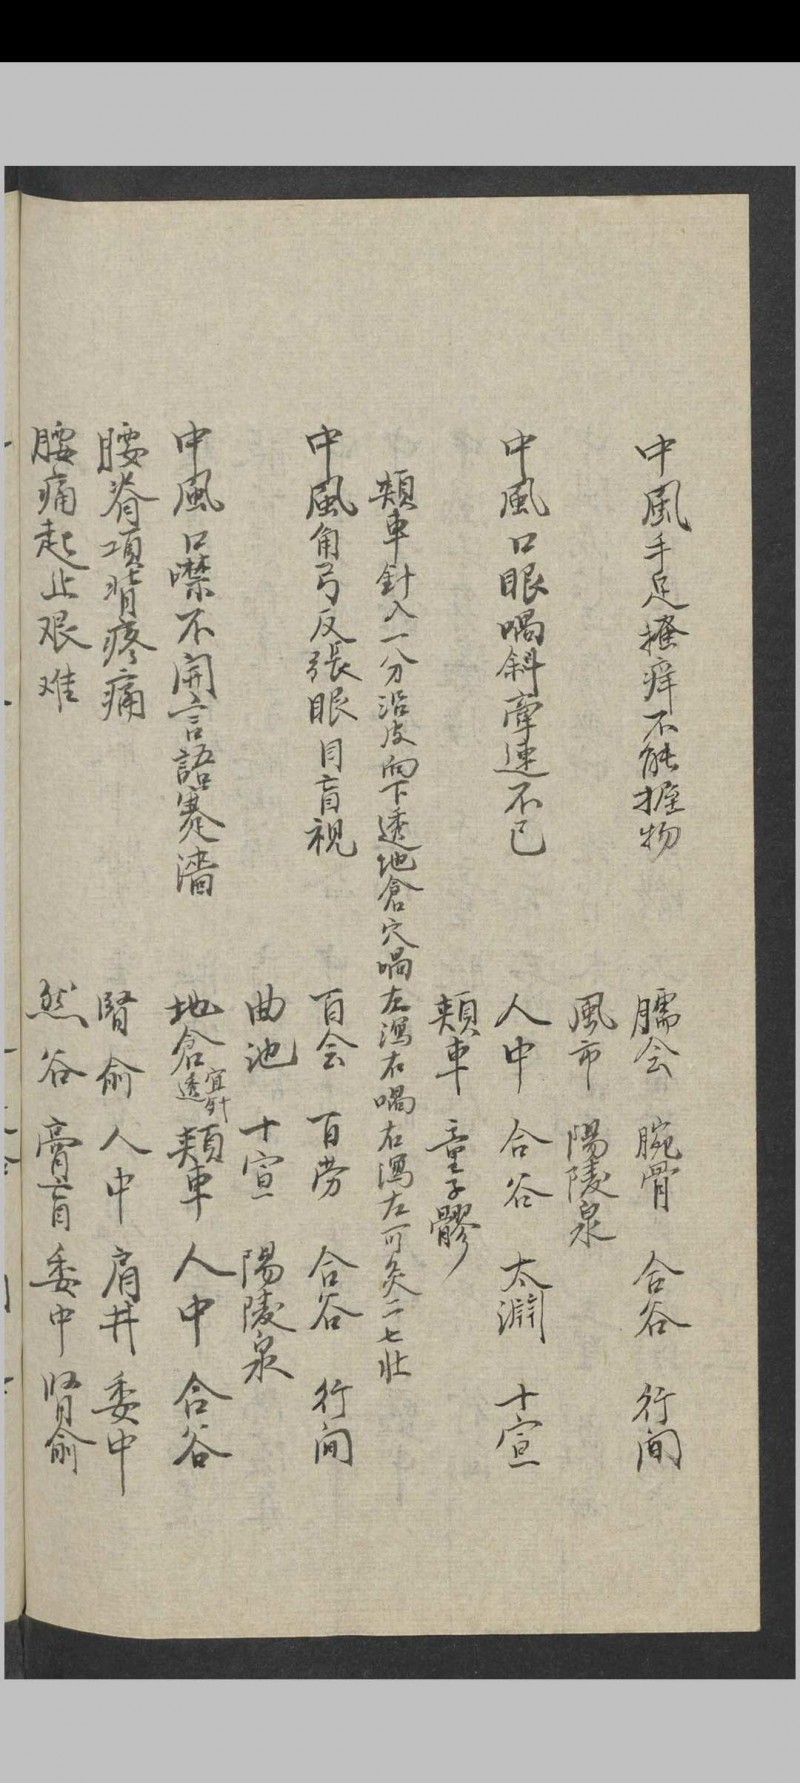 中風手足搔痒不能握物　臑会　腕骨　合谷　行间
風市　陽陵泉
中風口眼喎斜牽連不已　人中　合谷　太淵　十宣
頬車　童子髎
頬車針入一分沿皮向下透地倉穴喎左瀉右喎右瀉左可灸二七壮
中風角弓反張眼目盲視　百会　百劳　合谷　行间
曲池　十宣　陽陵泉
中風口噤不開言語蹇濇　地倉宜針透頬車　人中　合谷
腰脊項背疼痛　腎俞　人中　肩井　委中
腰痛起止艰难　然谷　膏肓　委中　腎俞